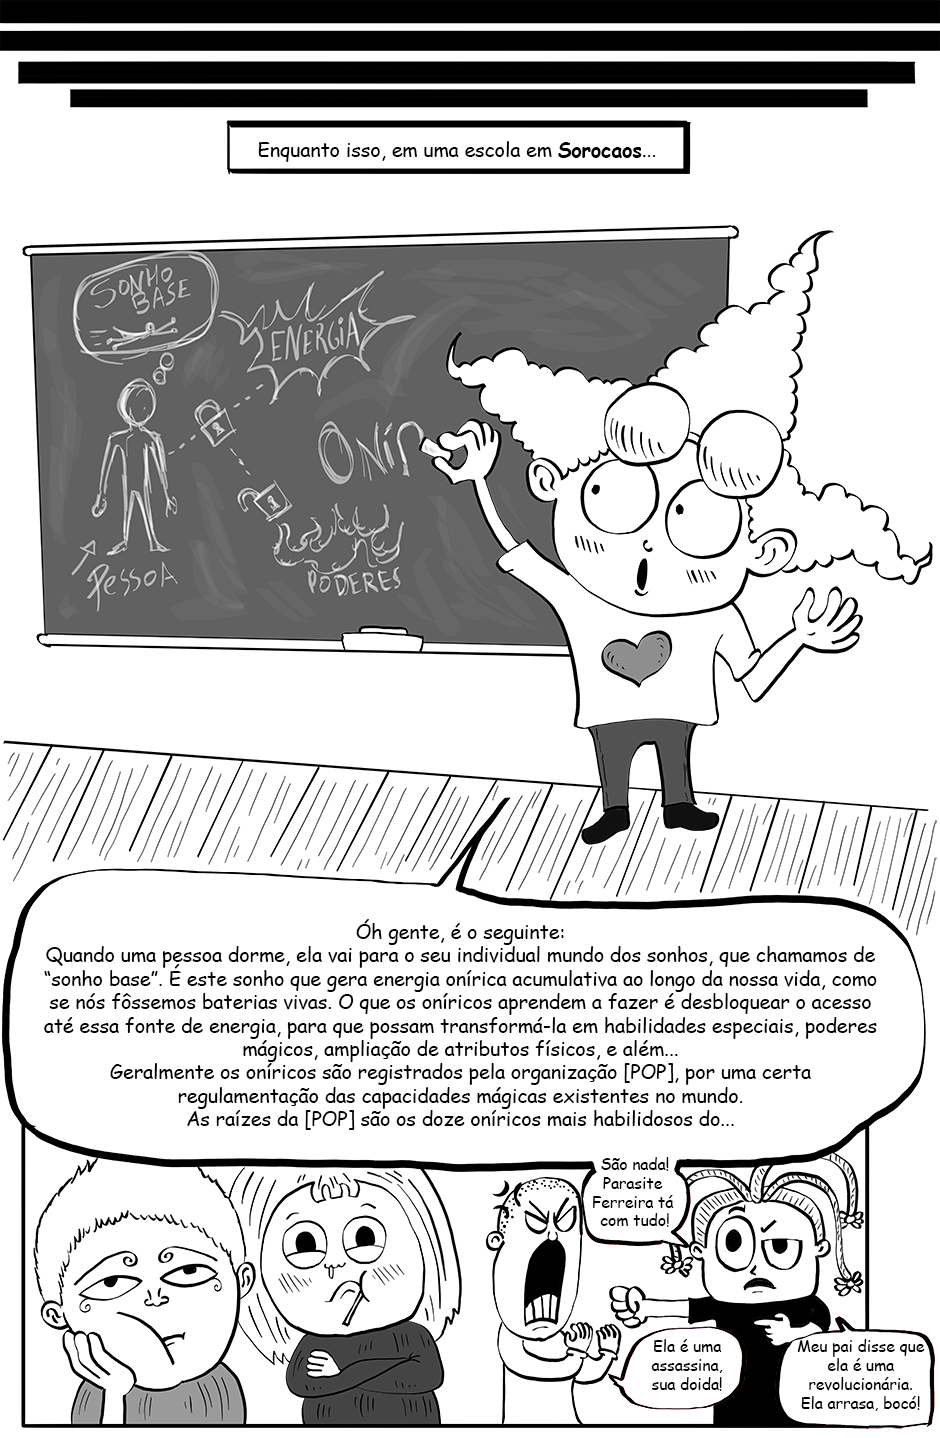 Enquanto isso, em uma escola em Sorocaos...
SONHO
BASE
ENERGIA
ONÍR
PESSOA
PODERES
Óh gente, é o seguinte:
Quando uma pessoa dorme, ela vai para o seu individual mundo dos sonhos, que chamamos de
“sonho base”. É este sonho que gera energia onírica acumulativa ao longo da nossa vida, como
se nós fôssemos baterias vivas. O que os oníricos aprendem a fazer é desbloquear o acesso
até essa fonte de energia, para que possam transformá-la em habilidades especiais, poderes
mágicos, ampliação de atributos físicos, e além...
Geralmente os oníricos são registrados pela organização [POP], por uma certa
regulamentação das capacidades mágicas existentes no mundo.
As raízes da [POP] são os doze oníricos mais habilidosos do...
São nada!
Parasite
Ferreira tá
com tudo!
Ela é uma
assassina,
sua doida!
Meu pai disse que
ela é uma
revolucionária.
Ela arrasa, bocó!